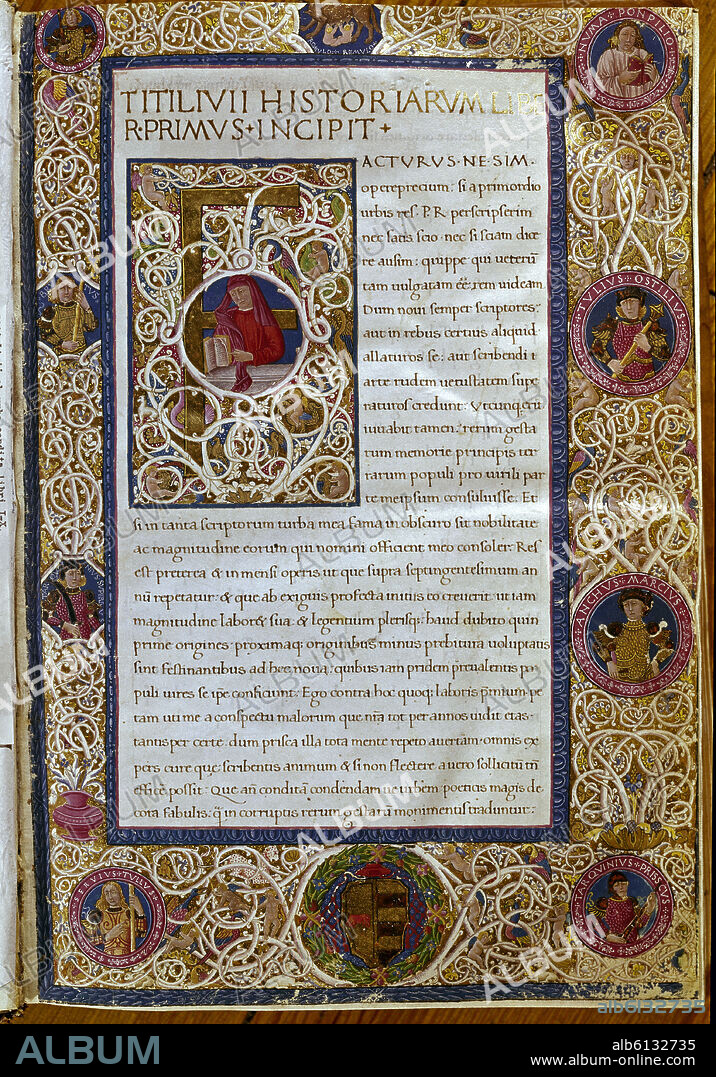 ROMULO
REMULO
NVMA PONPILIO
TITI LIVII HISTORIARVM LIBE
R·PRIMVS+INCIPIT+
ACTVRVS·NE SIM·
opereprecium: si a primordio
urbis res·P.R perscripserim
nec satis scio·nec si sciam dice
re ausim: quippe qui ueterū
tam uulgatam eē rem uideam
Dum noui semper scriptores:
aut in rebus certius aliquid
allaturos se: aut scribendi
arte rudem uetustatem supe
raturos credunt: Vtcunq; erit
iuuabit tamen: rerum gesta
rum memorie principis ter
rarum populi pro uirili par
te me ipsum consuluisse: Et
si in tanta scriptorum turba mea fama in obscuro sit nobilitate
ac magnitudine eorum qui nomini officient meo consoler: Res
est preterea & in mensi operis ut que supra septingentesimum an
nū repetatur: & que ab exiguis profecta initiis eo creuerit: ut iam
magnitudine laboret sua: & legentium plerisq;: haud dubito quin
prime origines proximaq; originibus minus prebitura uoluptatis
sint festinantibus ad hec noua: quibus iam pridem p̄ualentis po
puli uires se ip̄e conficiunt: Ego contra hoc quoq; laboris p̄mium pe
tam uti me a conspectu malorum que nr̄a tot per annos uidit etas·
tantisper certe·dum prisca illa tota mente repeto auertam: omnis ex
pers cure que scribentis animum & si non flectere a uero sollicitū tn̄
efficē possit: Que añ conditā condendam ue urbem poeticis magis de
cora fabulis: q̄ in corruptis rerum gestarū monimentis traduntur:
TVLIVS OSTILIVS
ANCHVS MARCIVS
SERVIVS TVLIVS
TARQVINIVS PRISCVS
ALBUM
alb6132735
ALBUM
alb6132735
www.album-online.com